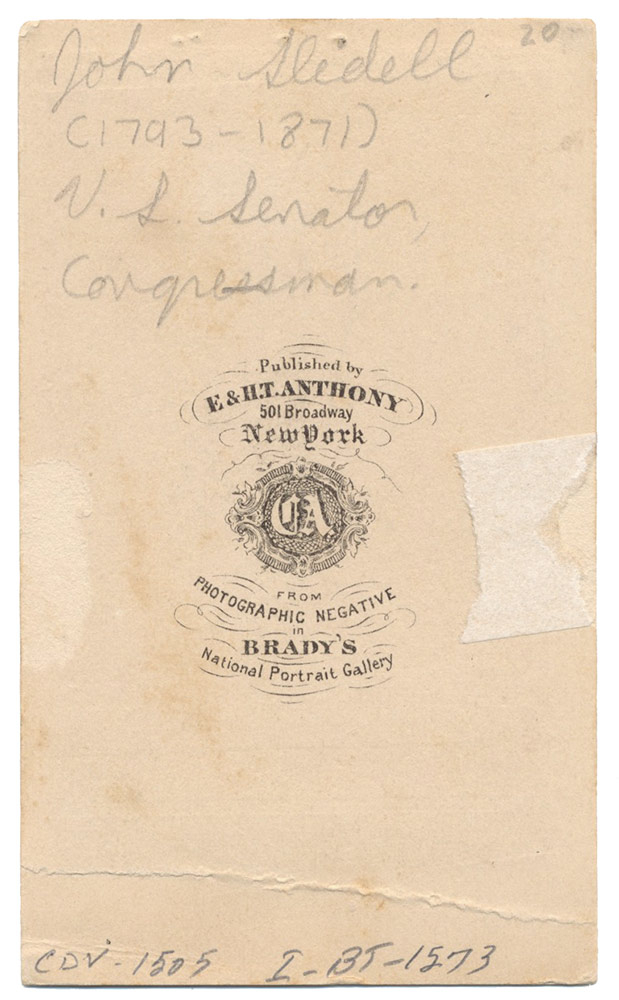 John Slidell
20-
(1793-1871)
U.S. Senator,
Congressman.
Published by
E & H.T. ANTHONY
501 Broadway
New York
FROM
PHOTOGRAPHIC NEGATIVE
in
BRADY'S
National Portrait Gallery
CDV-1505 I-BT-1573